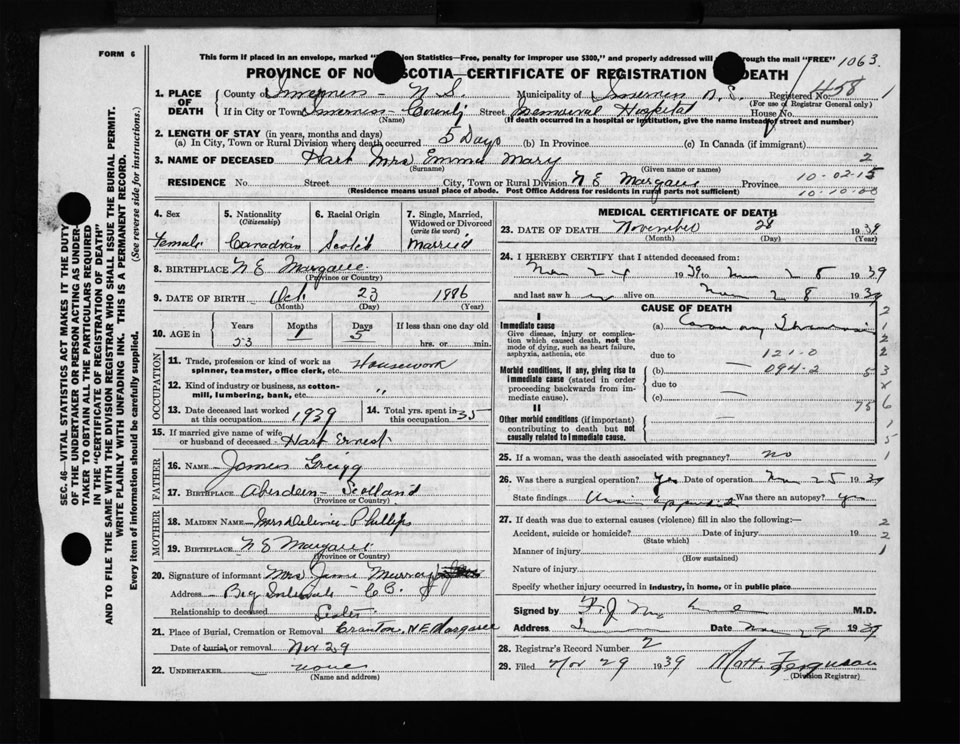 FORM 6
This form if placed in an envelope, marked "   on Statistics—Free, penalty for improper use $300," and properly addressed will   through the mail "FREE" 1063
PROVINCE OF NO   SCOTIA—CERTIFICATE OF REGISTRATION   DEATH
1. PLACE OF DEATH
County of Inverness - N S. Municipality of Inverness N. S. Registered No. 458
(For use of Registrar General only)
If in City or Town Inverness County Street Memorial Hospital House No.
(Name) (If death occurred in a hospital or institution, give the name instead of street and number)
2. LENGTH OF STAY (in years, months and days)
(a) In City, Town or Rural Division where death occurred 5 Days (b) In Province (c) In Canada (if immigrant)
3. NAME OF DECEASED Hart Mrs Emma Mary 2
(Surname) (Given name or names)
RESIDENCE No. Street City, Town or Rural Division N E Margaree Province 10-02-15
(Residence means usual place of abode. Post Office Address for residents in rural parts not sufficient) 10-10-00
4. Sex Female
5. Nationality (Citizenship) Canadian
6. Racial Origin Scotch
7. Single, Married, Widowed or Divorced (write the word) Married
8. BIRTHPLACE N E Margaree
(Province or Country)
9. DATE OF BIRTH Oct. 23 1886
(Month) (Day) (Year)
10. AGE in Years 53 Months 1 Days 5 If less than one day old hrs. or min.
OCCUPATION
11. Trade, profession or kind of work as spinner, teamster, office clerk, etc. Housework
12. Kind of industry or business, as cotton-mill, lumbering, bank, etc. "
13. Date deceased last worked at this occupation 1939
14. Total yrs. spent in this occupation 35
15. If married give name of wife or husband of deceased Hart Ernest
FATHER
16. NAME James Greigg
17. BIRTHPLACE Aberdeen - Scotland
(Province or Country)
MOTHER
18. MAIDEN NAME Mrs Phillips
19. BIRTHPLACE N E Margaree
(Province or Country)
20. Signature of informant Mrs Murray
Address Big Intervale C B.
Relationship to deceased Sister
21. Place of Burial, Cremation or Removal Cranton, N E Margaree
Date of burial or removal Nov 29
22. UNDERTAKER none
(Name and address)
MEDICAL CERTIFICATE OF DEATH
23. DATE OF DEATH November 28 1939
(Month) (Day) (Year)
24. I HEREBY CERTIFY that I attended deceased from:
Nov 24 1939 to Nov 28 1939
and last saw h alive on Nov 28 1939
CAUSE OF DEATH
I
Immediate cause (a) Coronary
Give disease, injury or complication which caused death, not the mode of dying, such as heart failure, asphyxia, asthenia, etc
due to 121-0
Morbid conditions, if any, giving rise to immediate cause (stated in order proceeding backwards from immediate cause).
(b) — 094-2
due to
(c) —
II
Other morbid conditions (if important) contributing to death but not causally related to immediate cause.
25. If a woman, was the death associated with pregnancy? no
26. Was there a surgical operation? yes Date of operation Nov 25 1939
State findings Was there an autopsy?
27. If death was due to external causes (violence) fill in also the following:—
Accident, suicide or homicide? Date of injury 19
(State which)
Manner of injury
(How sustained)
Nature of injury
Specify whether injury occurred in industry, in home, or in public place
Signed by M.D.
Address Date Nov 29 1939
28. Registrar's Record Number 2
29. Filed Nov 29 1939 Matt. Ferguson
(Division Registrar)
SEC. 46—VITAL STATISTICS ACT MAKES IT THE DUTY
OF THE UNDERTAKER OR PERSON ACTING AS UNDER-
TAKER TO OBTAIN ALL THE PARTICULARS REQUIRED
IN THE "CERTIFICATE OF REGISTRATION OF DEATH"
AND TO FILE THE SAME WITH THE DIVISION REGISTRAR WHO SHALL ISSUE THE BURIAL PERMIT.
WRITE PLAINLY WITH UNFADING INK. THIS IS A PERMANENT RECORD.
Every item of information should be carefully supplied. (See reverse side for instructions.)